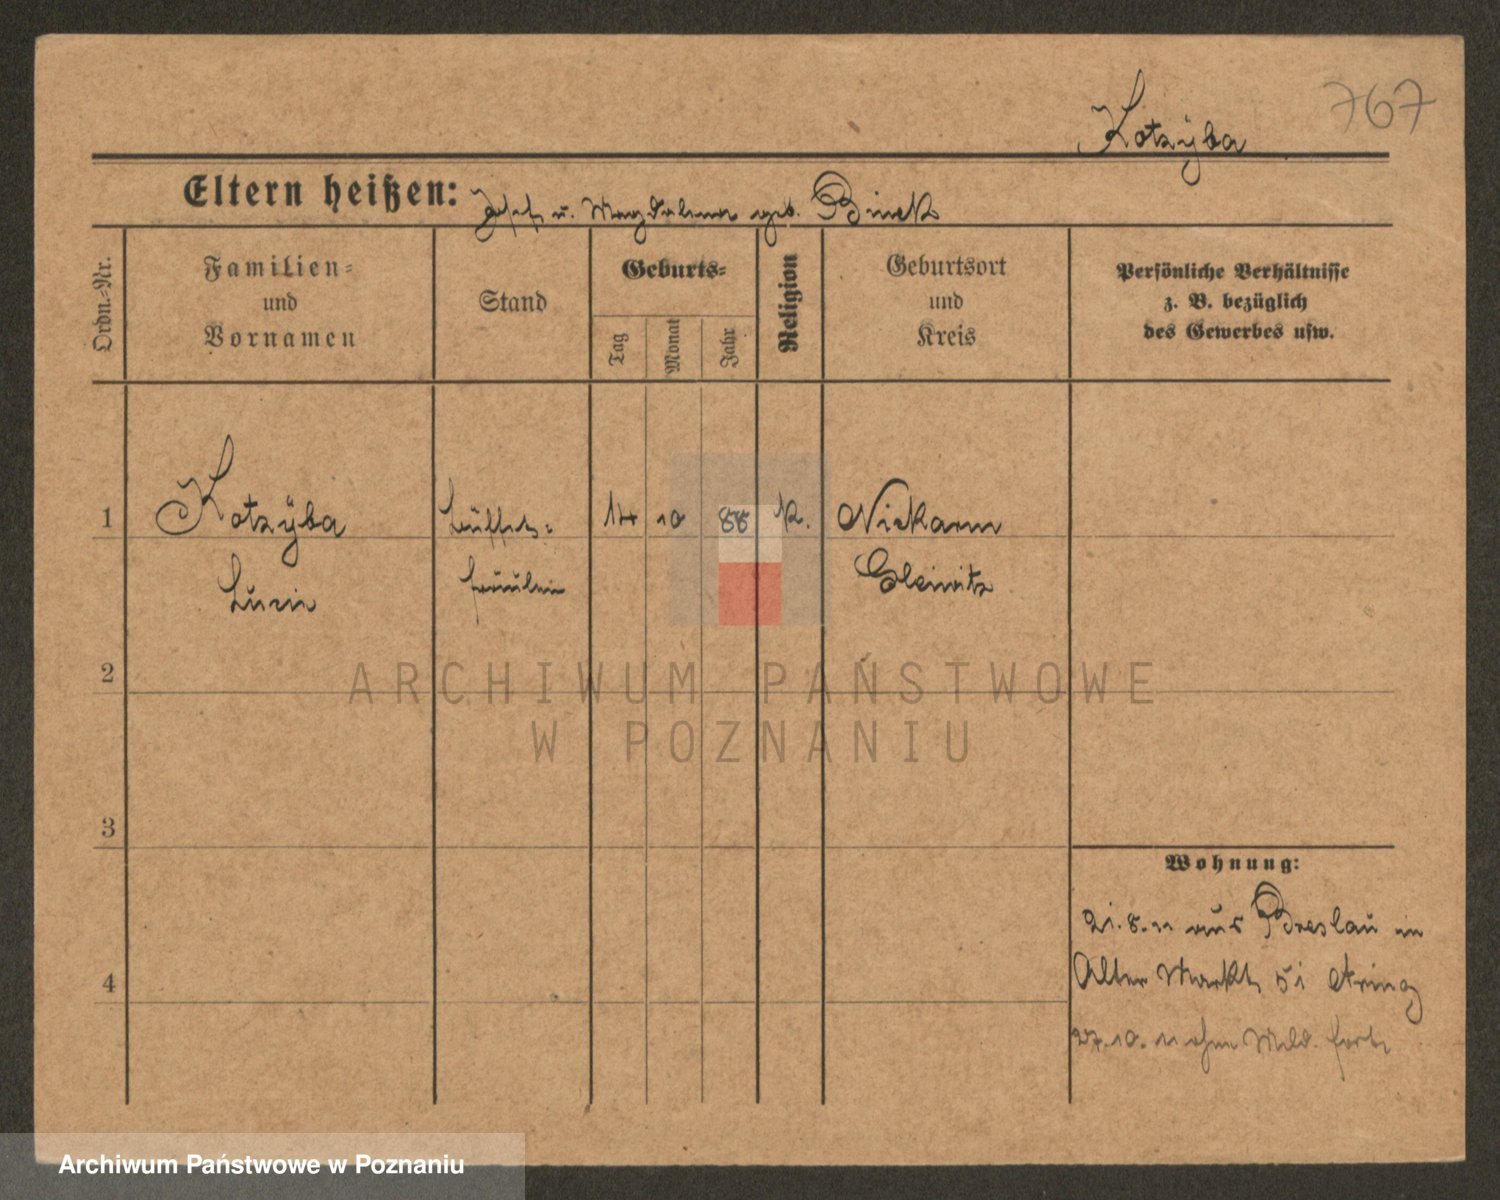 767
Kotzÿba
Eltern heißen: Josef u. Magdalena geb. Binek
Ordn.=Nr.
Familien=
und
Vornamen
Stand
Geburts=
Tag
Monat
Jahr
Religion
Geburtsort
und
Kreis
Persönliche Verhältnisse
z. B. bezüglich
des Gewerbes usw.
1 Kotzÿba Büffet= 14 10 88 k.
Lucie fräulein Gleiwitz
2
3
4
Wohnung:
21.8.11 aus Breslau in
Alter Markt 51
27.10.11 ohne Meld. fort
ARCHIWUM PAŃSTWOWE
W POZNANIU
Archiwum Państwowe w Poznaniu